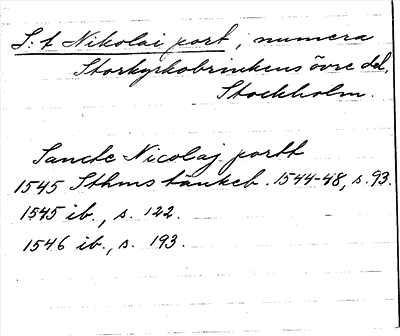 S:t Nikolai port, numera
Storkyrkobrinkens övre del,
Stockholm.
Sancte Nicolaj portt
1545 Sthms tänkeb. 1544-48, s. 93.
1545 ib., s. 122.
1546 ib., s. 193.